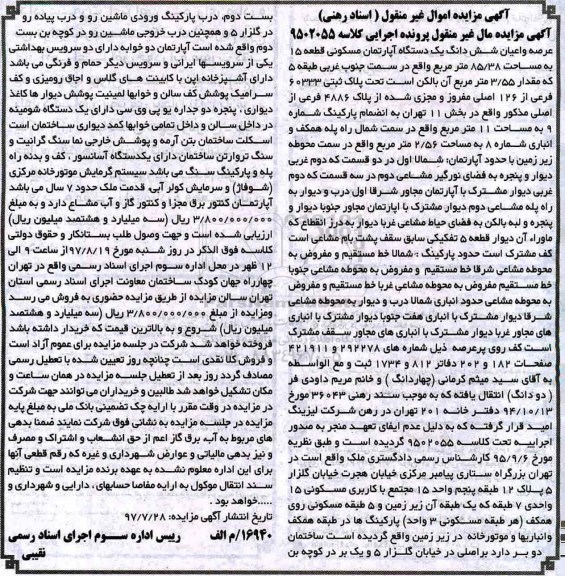 آگهی مزایده اموال غیر منقول ( اسناد رهنی)
آگهی مزایده مال غیر منقول پرونده اجرایی کلاسه ۹۵۰۲۰۵۵
عرصه واعیان شش دانگ یک دستگاه آپارتمان مسکونی قطعه ۱۵
به مساحت ۸۵/۳۸ متر مربع واقع در سمت جنوب غربی طبقه ۵
که مقدار ۳/۵۵ متر مربع آن بالکن است تحت پلاک ثبتی ۶۰۳۳۳
فرعی از ۱۲۶ اصلی مفروز و مجزی شده از پلاک ۴۸۸۶ فرعی از
اصلی مذکور واقع در بخش ۱۱ تهران به انضمام پارکینگ شماره
۹ به مساحت ۱۱ متر مربع واقع در سمت شمال راه پله همکف و
انباری شماره ۸ به مساحت ۲/۵۶ متر مربع واقع در سمت محوطه
زیر زمین با حدود آپارتمان: شمالا اول در دو قسمت که دوم غربی
دیوار و پنجره به فضای نورگیر مشاعی دوم در سه قسمت که دوم
غربی دیوار مشترک با آپارتمان مجاور شرقا اول درب و دیوار به
راه پله مشاعی دوم دیوار مشترک با اپارتمان مجاور جنوبا دیوار و
پنجره و لبه بالکن به فضای حیاط مشاعی غربا دیوار به درز انقطاع که
ماوراء آن دیوار قطعه ۵ تفکیکی سابق سقف پشت بام مشاعی است
کف مشترک است حدود پارکینگ : شمالا خط مستقیم و مفروض به
محوطه مشاعی شرقا خط مستقیم و مفروض به محوطه مشاعی جنوبا
خط مستقیم مفروض به محوطه مشاعی غربا خط مستقیم و مفروض
به محوطه مشاعی حدود انباری شمالا درب و دیوار به محوطه مشاعی
شرقا دیوار مشترک با انباری هفت جنوبا دیوار مشترک با انباری
های مجاور غربا دیوار مشترک با انباری های مجاور سقف مشترک
است کف روی پرعرصه ذیل شماره های ۲۹۲۲۷۸ و ۴۲۱۹۱۱
صفحات ۱۸۲ و ۲۰۲ دفاتر ۸۱۲ و ۱۷۳۴ ثبت و مع الواسطه
به آقای سید میثم کرمانی (چهاردانگ ) و خانم مریم داودی فر
( دو دانگ) انتقال یافته که به موجب سند رهنی ۳۶۰۴۳ مورخ
۹۴/۱۰/۱۳ دفتر خانه ۲۰۱ تهران در رهن شرکت لیزینگ
امید قرار گرفته که به دلیل عدم ایفای تعهد منجر به صدور
اجراییه تحت کلاسه ۹۵۰۲۰۵۵ گردیده است و طبق نظریه
مورخ ۹۵/۹/۶ کارشناس رسمی دادگستری ملک واقع است در
تهران بزرگراه ستاری پیامبر مرکزی خیابان هجرت خیابان گلزار
۵ پلاک ۱۲ طبقه پنجم واحد ۱۵ مجتمع با کاربری مسکونی ۱۵
واحدی ۷ طبقه که یک طبقه آن زیر زمین و ۵ طبقه مسکونی روی
همکف (هر طبقه مسکونی ۳ واحد) پارکینگ ها در طبقه همکف
وانباریها و موتورخانه در زیر زمین واقع گردیده است ساختمان
دو بر دارد براصلی در خیابان گلزار ۵ و یک بر در کوچه بن
بست دوم، درب پارکینگ ورودی ماشین رو و درب پیاده رو
در گلزار ۵ و همچنین درب خروجی ماشین رو در کوچه بن بست
دوم واقع شده است آپارتمان دو خوابه دارای دو سرویس بهداشتی
یکی از سرویسها ایرانی و سرویس دیگر حمام و فرنگی می باشد
دارای آشپزخانه اپن با کابینت های گلاس و اجاق رومیزی و کف
سرامیک پوشش کف سالن و خوابها لمینت پوشش دیوار ها کاغذ
دیواری ، پنجره دو جداره یو پی وی سی دارای یک دستگاه شومینه
در داخل سالن و داخل تمامی خوابها کمد دیواری ساختمان است
اسکلت ساختمان بتن آرمه و پوشش خارجی نما سنگ گرانیت و
سنگ تروارتن ساختمان دارای یکدستگاه آسانسور ، کف و بدنه راه
پله و پارکینگ سنگ می باشد سیستم گرمایش موتورخانه مرکزی
(شوفاژ) و سرمایش کولر آبی، قدمت ملک حدود ۷ سال می باشد
آپارتمان کنتور برق مجزا و کنتور گاز و آب مشاع دارد و به مبلغ
۳/۸۰۰/۰۰۰/۰۰۰ ریال (سه میلیارد و هشتصد میلیون ریال)
ارزیابی شده است و جهت وصول طلب بستانکار و حقوق دولتی
کلاسه فوق الذکر در روز شنبه مورخ ۹۷/۸/۱۹از ساعت ۹ الی
۱۲ ظهر در محل اداره سوم اجرای اسناد رسمی واقع در تهران
چهارراه جهان کودک ساختمان معاونت اجرای اسناد رسمی استان
تهران سالن مزایده از طریق مزایده حضوری به فروش می رسد
ومزایده از مبلغ ۳/۸۰۰/۰۰۰/۰۰۰ ریال (سه میلیارد و هشتصد
میلیون ریال) شروع و به بالاترین قیمت که خریدار داشته باشد
فروخته خواهد شد شرکت در جلسه مزایده برای عموم آزاد است
و فروش کلا نقدی است چنانچه روز تعیین شده با تعطیل رسمی
مصادف گردد روز بعد از تعطیل جلسه مزایده در همان ساعت و
مکان تشکیل خواهد شد طالبین و خریداران می توانند جهت شرکت
در مزایده در وقت مقرر با ارایه چک تضمینی بانک ملی به مبلغ پایه
مزایده در جلسه مزایده به نشانی فوق شرکت نمایند ضمنا بدهی
های مربوط به آب، برق گاز اعم از حق انشعاب و اشتراک و مصرف
و نیز بدهی مالیاتی و عوارض شهرداری و غیره که رقم قطعی آنها
برای این اداره معلوم نشده به عهده برنده مزایده است و تنظیم
سند انتقال موکول به ارایه مفاصا حسابهای ، دارایی و شهرداری و
.....خواهد بود .
تاریخ انتشار آگهی مزایده: ۹۷/۷/۲۸
۱۶۹۴۰/م الف رییس اداره سوم اجرای اسناد رسمی
نقیبی